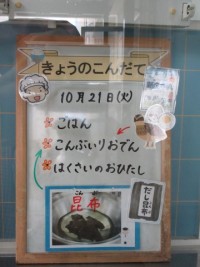 きょうのこんだて
10月21日(火)
ごはん
こんぶいりおでん
はくさいのおひたし
昆布
だし昆布